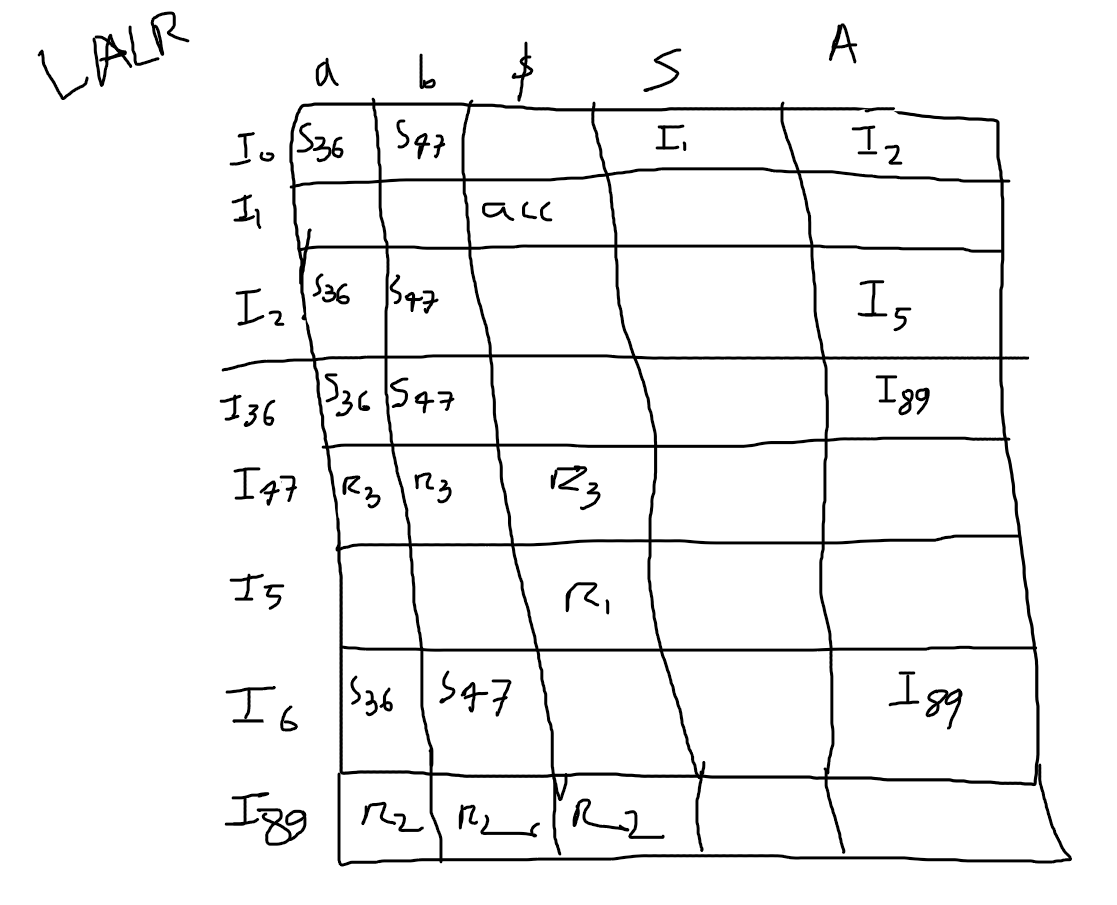 LALR
a b $ S A
I0 S36 S47 I1 I2
I1 acc
I2 S36 S47 I5
I36 S36 S47 I89
I47 R3 R3 R3
I5 R1
I6 S36 S47 I89
I89 R2 R2 R2